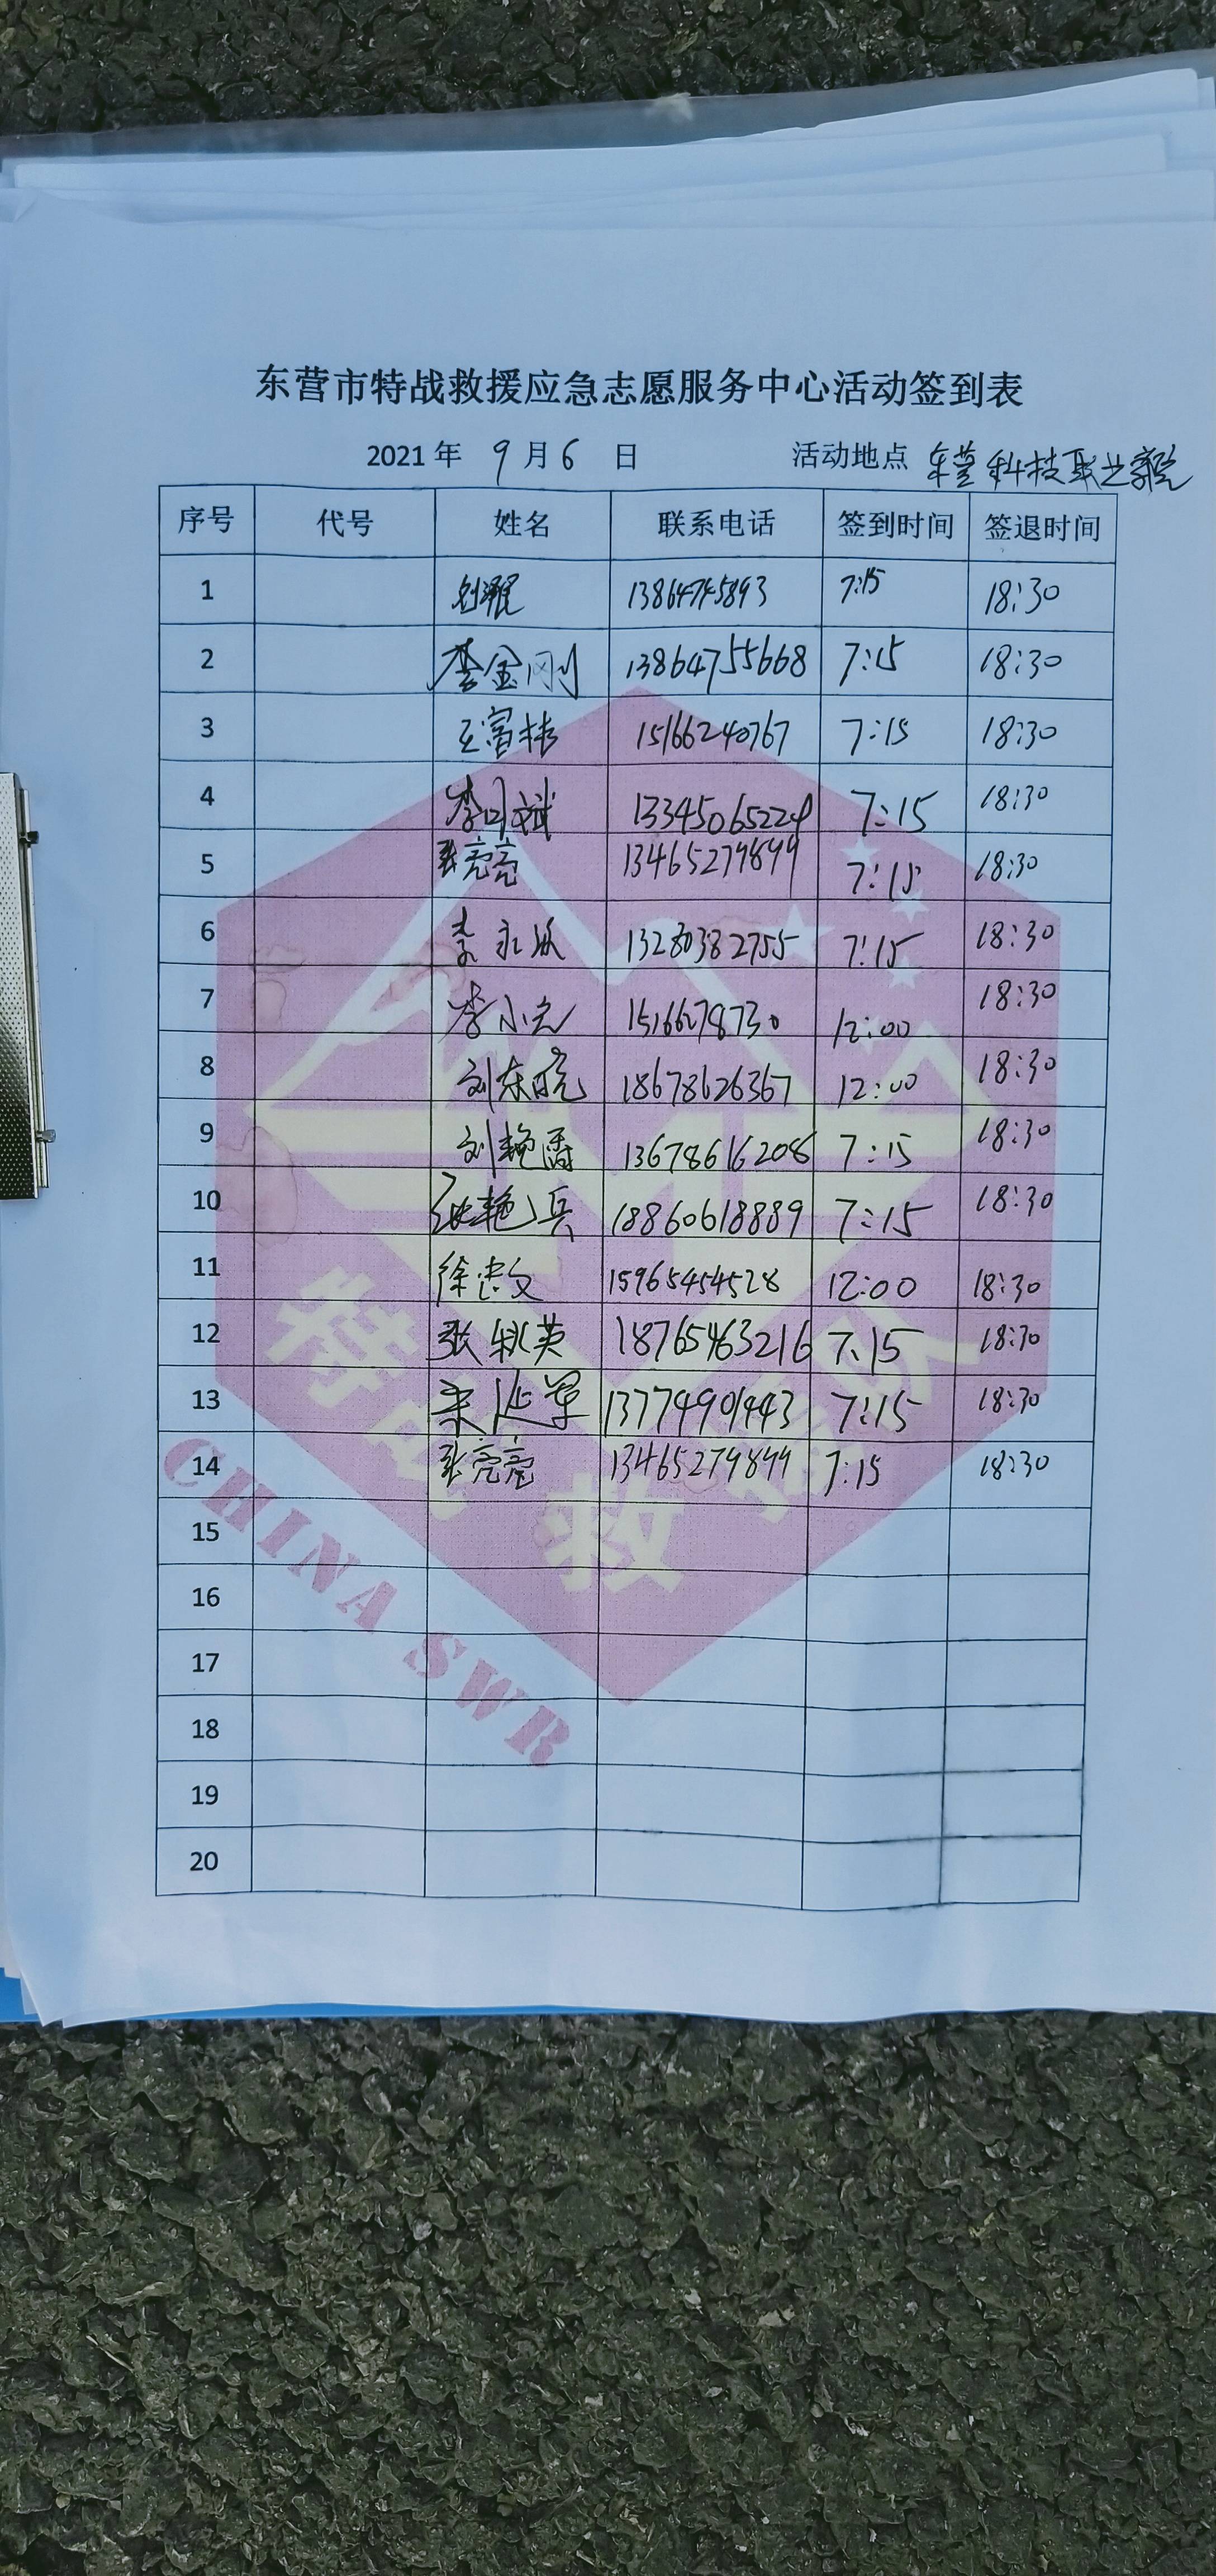 东营市特战救援应急志愿服务中心活动签到表
2021 年 9 月 6 日 活动地点 东营科技职业学院
序号 代号 姓名 联系电话 签到时间 签退时间
1 7:15 18:30
2 李金刚 13864755668 7:15 18:30
3 王富林 15166240767 7:15 18:30
4 13345065224 7:15 18:30
5 张亮亮 13465279899 7:15 18:30
6 13280382755 7:15 18:30
7 李小光 15166278730 12:00 18:30
8 刘东晓 18678626367 12:00 18:30
9 刘艳霞 13678616208 7:15 18:30
10 张艳兵 18860618889 7:15 18:30
11 徐忠文 15965454528 12:00 18:30
12 张秋英 18765463216 7:15 18:30
13 宋延军 13774901443 7:15 18:30
14 张亮亮 13465279899 7:15 18:30
15
16
17
18
19
20
特战救援队
CHINA SWR